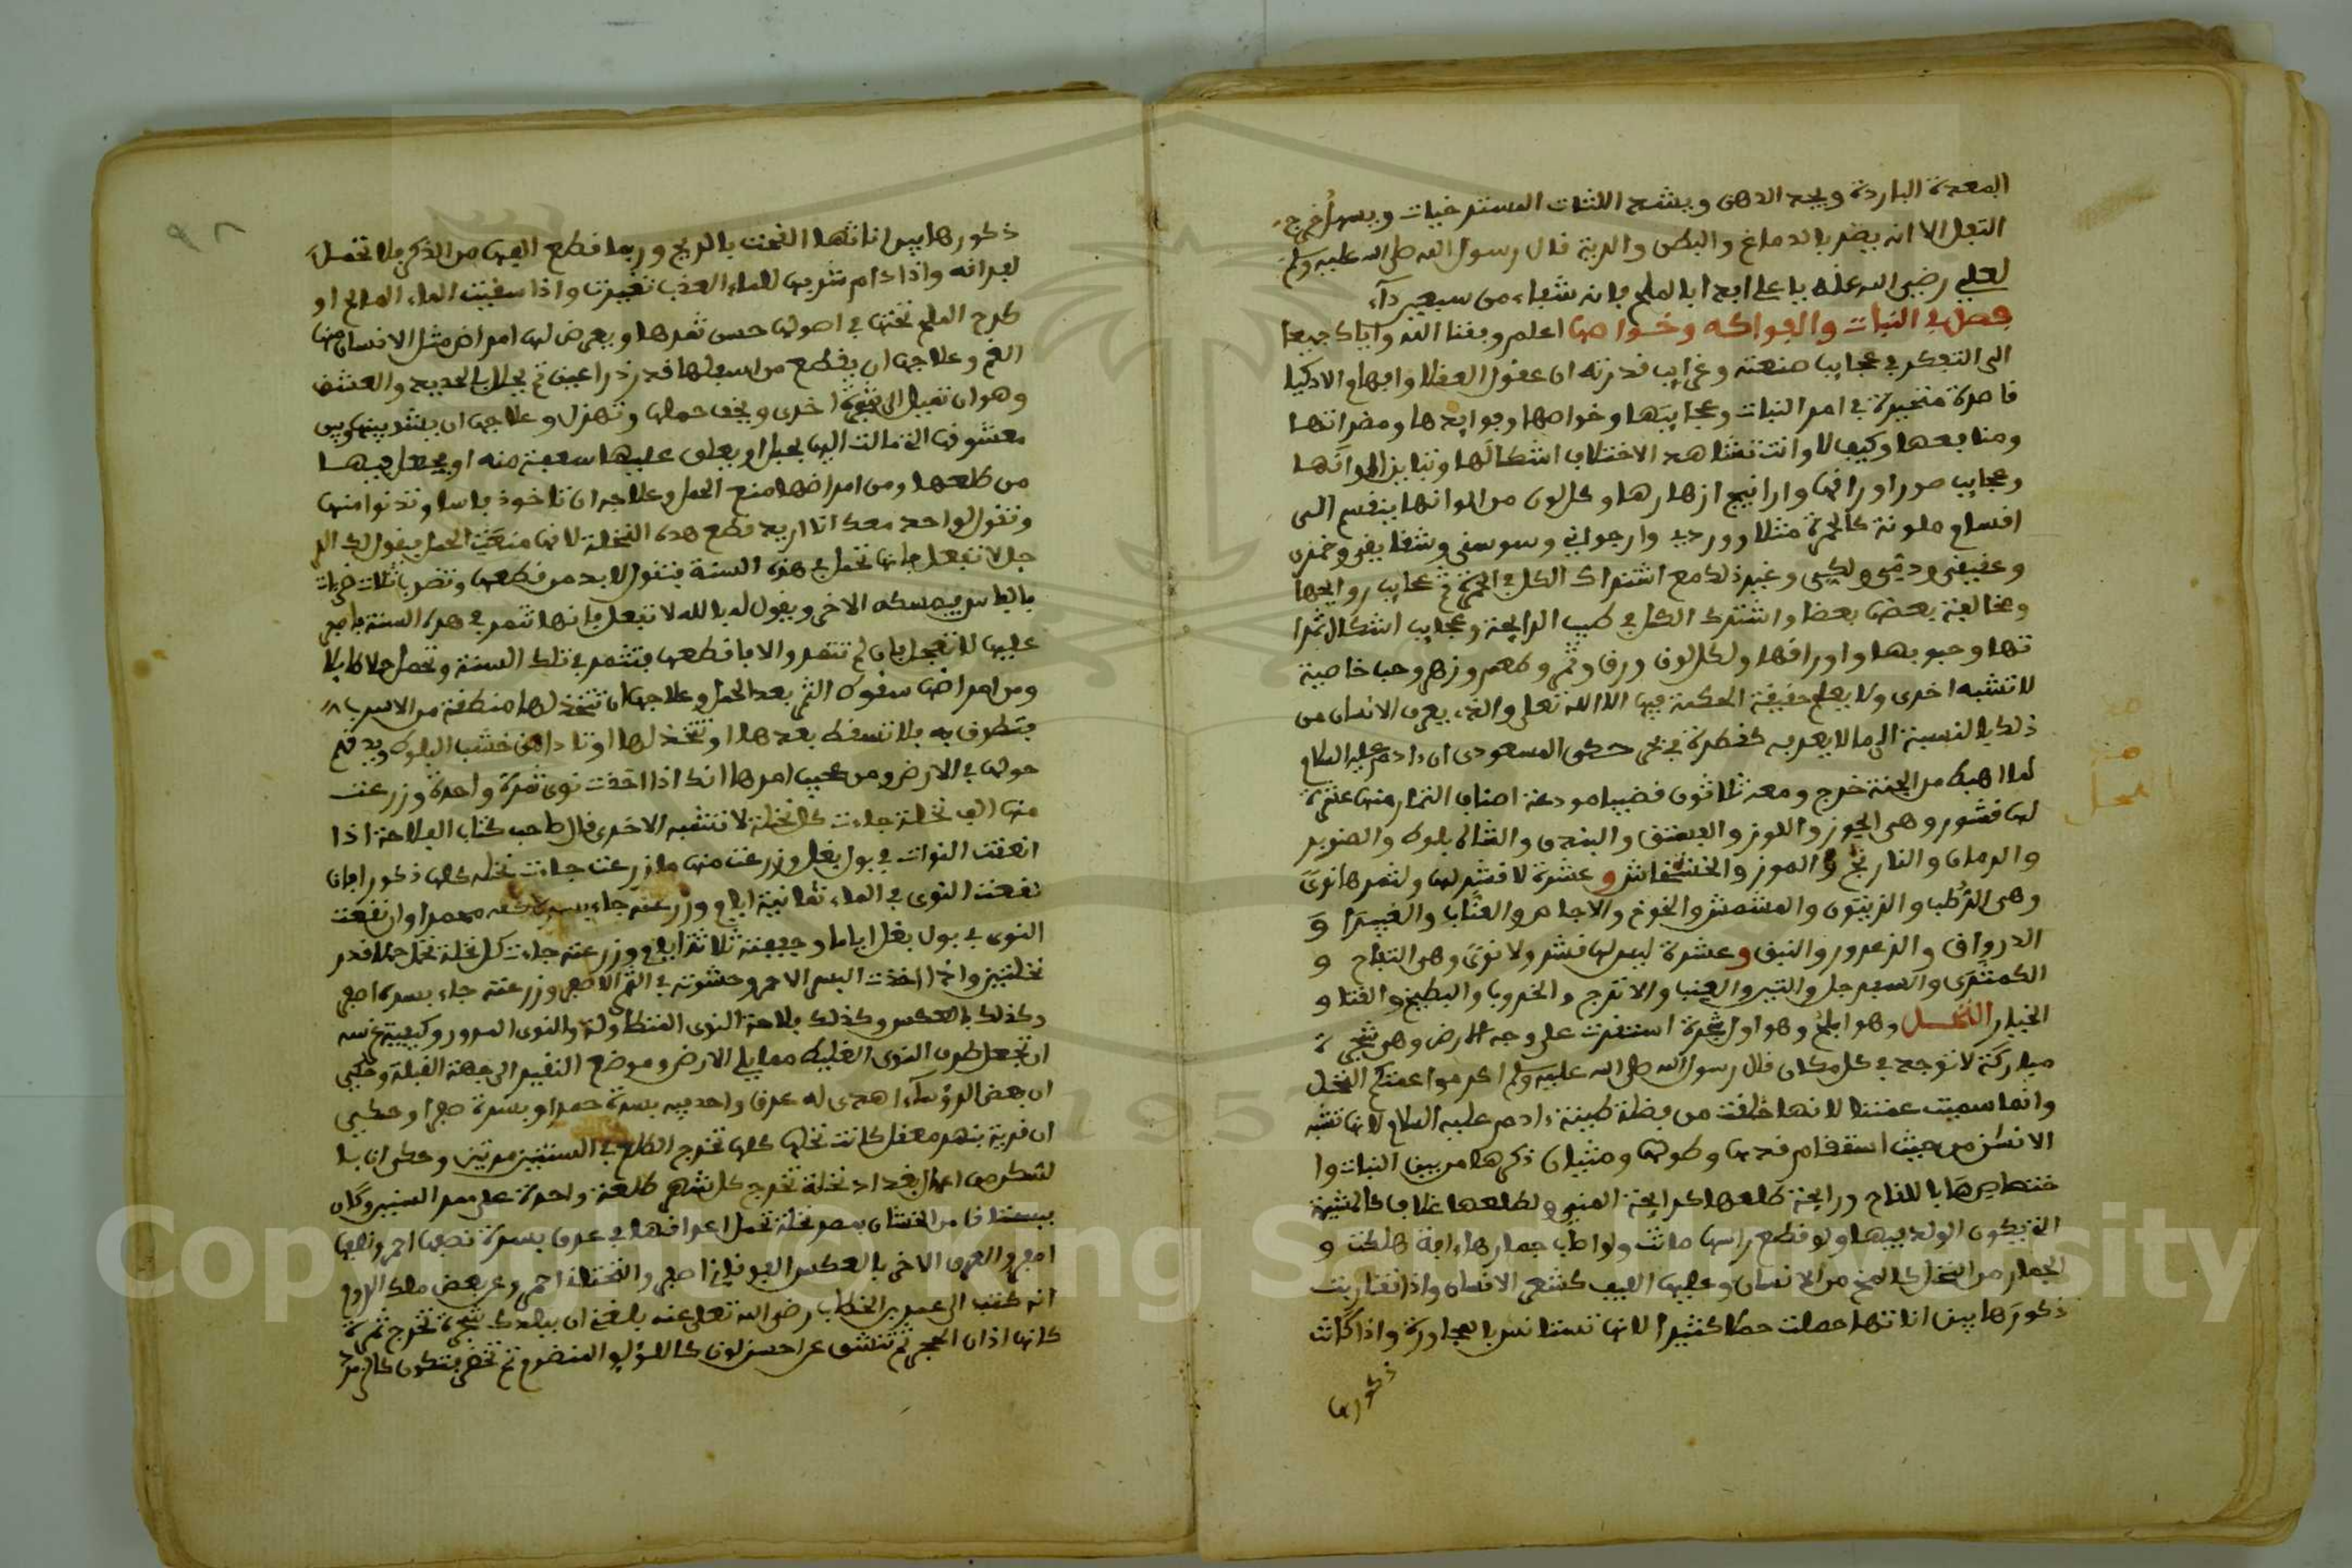 المعدة الباردة ويحد الدهن ويشد اللثات المسترخيات ويسهل خروج
التفل الا انه يضر بالدماغ والبطن والرية قال رسول الله صلى الله عليه وسلم
لعلي رضي الله عنه يا علي ابدا بالملح فانه شفاء من سبعين داء
فصل في النبات والفواكه وخواصها اعلم وفقنا الله واياك جميعا
الى التفكر في عجايب صنعته وغرايب قدرته ان عقول العقلا وافهام الاذكيا
قاصرة متحيرة في امر النبات وعجايبها وخواصها وفوايدها ومضراتها
ومنافعها وكيف لا وانت تشاهد الاختلاف اشكالها وتباين الوانها
وعجايب صور اوراقها وارانيج ازهارها وكل لون من الوانها ينقسم الى
اقسام ملونة كالحمرة مثلا وردي وارجواني وسوسني وشقايقي وخمري
وعقيقي ودمي ولكي وغير ذلك مع اشتراك الكل في الحمرة ثم عجايب روايحها
ومخالفة بعضها بعضا واشترك الكل في طيب الرايحة وعجايب اشكال ثمرا
تها وحبوبها واوراقها ولكل لون ورق وثمر وطعم وزهر وحب خاصية
لا تشبه اخرى ولا يعلم حقيقة الحكمة فيها الا الله تعلى والذي يعرف الانسان من
ذلك بالنسبة الى ما لا يعرفه كقطرة في بحر حكى المسعودي ان ادم عليه السلام
لما اهبط من الجنة خرج ومعه ثلاثون قضيبا مودعة اصناف الثمار منها عشرة
لها قشور وهي الجوز واللوز والفستق والبندق والشاه بلوط والصنوبر
والرمان والنارنج والموز والخشخاش وعشرة لا قشر لها ولثمرها نوى
وهي الرطب والزيتون والمشمش والخوخ والاجاص والعناب والغبيرا و
الدرواق والزعرور والنبق وعشرة ليس لها قشر ولا نوى وهي التفاح و
الكمثرى والسفرجل والتين والعنب والاترج والخروب والبطيخ والقثا و
الخيار النخل وهو اول شجرة استقرت على وجه الارض وهي شجرة
مباركة لا توجد في كل مكان قال رسول الله صلى الله عليه وسلم اكرموا عمتكم النخل
وانما سميت عمتنا لانها خلقت من فضلة طينة ادم عليه السلام لانها تشبه
الانسان من حيث استقام قدها وطولها وامتياز ذكرها من بين النبات وا
ختصاصها باللقاح ورايحة طلعها كرايحة المني ولطلعها غلاف كالمشيمة
التي يكون الولد فيها ولو قطع راسها ماتت ولو اصاب جمارها افة هلكت و
الجمار من النخل كالمخ من الانسان وعليها الليف كشعر الانسان واذا تقاربت
ذكورها بين اناثها حملت حملا كثيرا لانها تستانس بالمجاورة واذا كانت
ذكورها
ذكورها بين اناثها القحت بالريح وربما قطع الفها من الذكر فلا تحمل
لفراقه واذا دام شربها للماء العذب تغيرت واذا سقيت الماء المالح او
طرح الملح تحتها في اصولها حسن ثمرها ويعرض لها امراض مثل الانسان منها
الغم وعلاجها ان يقطع من اسفلها قدر ذراعين ثم يحلل بالحديد والعشق
وهو ان تميل الى شجرة اخرى ويخف حملها وتهزل وعلاجها ان يشد بينها وبين
معشوقها التي مالت اليها بحبل او يعلق عليها سعفة منه او يجعل فيها
من طلعها ومن امراضها منع الحمل وعلاجه ان تاخذ فاسا وتدنوا منها
وتقول لواحد معك انا اريد قطع هذه النخلة لانها منعت الحمل فيقول لك الر
جل لا تفعل فانها تحمل في هذه السنة فتقول لا بد من قطعها وتضرب ثلاث ضربات
بالفاس فيمسكه الاخر ويقول له بالله لا تفعل فانها تثمر في هذه السنة فاصبر
عليها لا تعجل فان لم تثمر والا فاقطعها فتثمر في تلك السنة وتحمل حملا طايلا
ومن امراضها سقوط الثمر بعد الحمل وعلاجها ان تتخذ لها منطقة من الاسرب
فتطوق به فلا تسقط بعدها او تتخذ لها اوتادا من خشب البلوط ويدفن
حولها في الارض ومن عجيب امرها انك اذا اخذت نوى ثمرة واحدة وزرعت
منها الف نخلة جاءت كل نخلة لا تشبه الاخرى قال صاحب كتاب الفلاحة اذا
انقعت النوات في بول بغل وزرعت منها ما زرعت جاءت نخله كلها ذكور فان
نقعت النوى في الماء ثمانية ايام وزرعته جاء بسره كله محمرا وان نقعت
النوى في بول بغل اياما وجففته ثلاثة ايام وزرعته جاءت كل نخلة تحمل حمل قدر
نخلتين واذا اخذت البسر الاحمر وحشوته في التمر الاصفر وزرعته جاء بسره اصفر
وكذلك بالعكس وكذلك فلاحة النوى المتطاولة والنوى المدور وكيفية غرسه
ان تجعل طرف النوى الغليظ مما يلي الارض وموضع النقير الى جهة القبلة وحكي
ان بعض الرؤساء اهدى له عرق واحد فيه بسرة حمرا وبسرة صفرا وحكي
ان قرية بنهر معقل كانت نخلها كلها تخرج الطلع في السنة مرتين وحكي ان بـ
من اعمال بغداد نخلة تخرج كل شهر طلعة واحدة على ممر السنين وكان
ببستان ابن الخشاب بمصر نخلة تحمل اعرافها في عرق بسرة نصفها احمر ونصفها
اصفر والعرق الاخر بالعكس الفوقاني اصفر والتحتاني احمر وعن بعض ملك الروم
انه كتب الى عمر بن الخطاب رضي الله تعلى عنه بلغني ان ببلدك شجرة تخرج ثمرة
كانها اذان الحمر ثم تنشق عن احسن لون كاللؤلؤ المنضود ثم تخضر فتكون كالزمرد